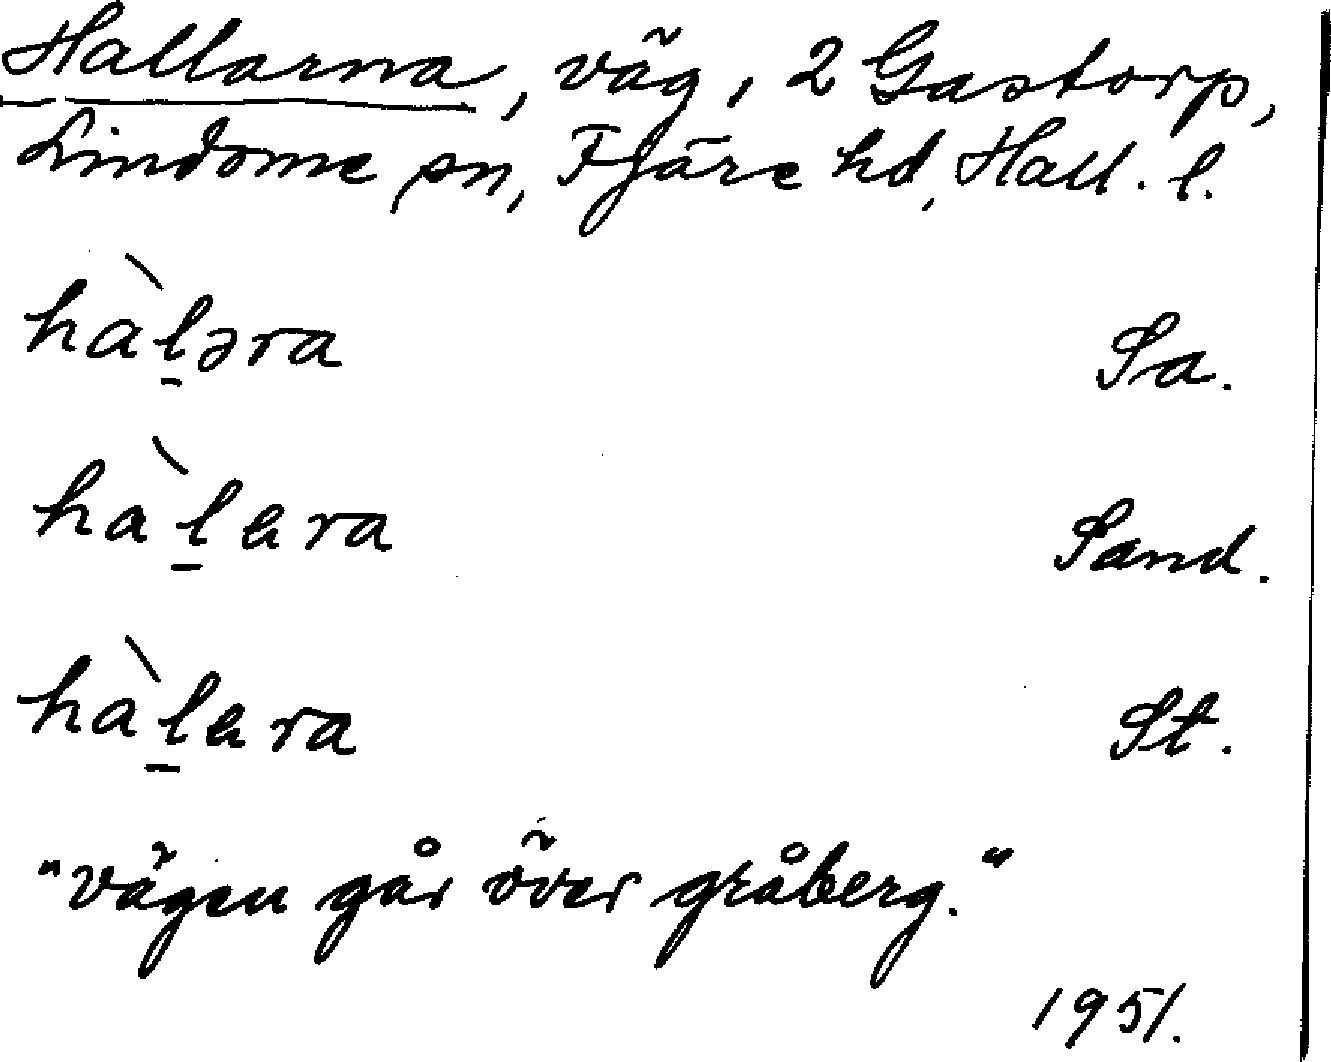 Hallarna, väg, 2 Gastorp,
Lindome sn, Fjäre hd, Hall. l.
hàl̠əra Sa.
hàl̠ara Sand.
hàl̠ara St.
"vägen går över gråberg."
1951.